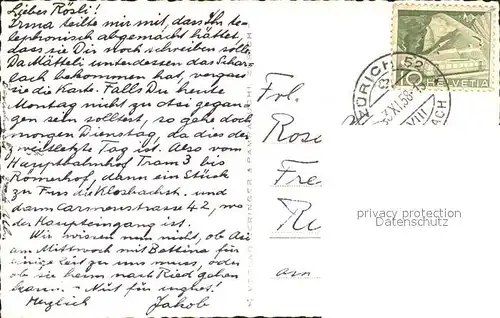 Liebes Rösli!
Irma teilte mir mit, dass Ihr te-
lephonisch abgemacht hättet,
dass sie Dir noch schreiben solle.
Da Mätteli unterdessen das Schar-
lach bekommen hat, vergass
sie die Karte. Falls Du heute
Montag nicht zu otsi gegan-
gen sein solltest, so gehe doch
morgen Dienstag, da dies der
zweitletzte Tag ist. Also vom
Hauptbahnhof Tram 3 bis
Römerhof, dann ein Stück
zu Fuss die Klosbachstr. und
dann Carmenstrasse 42, wo
der Haupteingang ist.
Wir wissen nun nicht, ob Du
am Mittwoch mit Bettina für
einige Zeit zu uns muss, oder
ob sie heim nach Ried gehen
kann. - Nüt für unguet!
Herzlich Jakob
Frl.
Rosi
Fre
Ri
am
10 HELVETIA
ZÜRICH 52
XI.58
VIII
BACH
privacy protection
Datenschutz